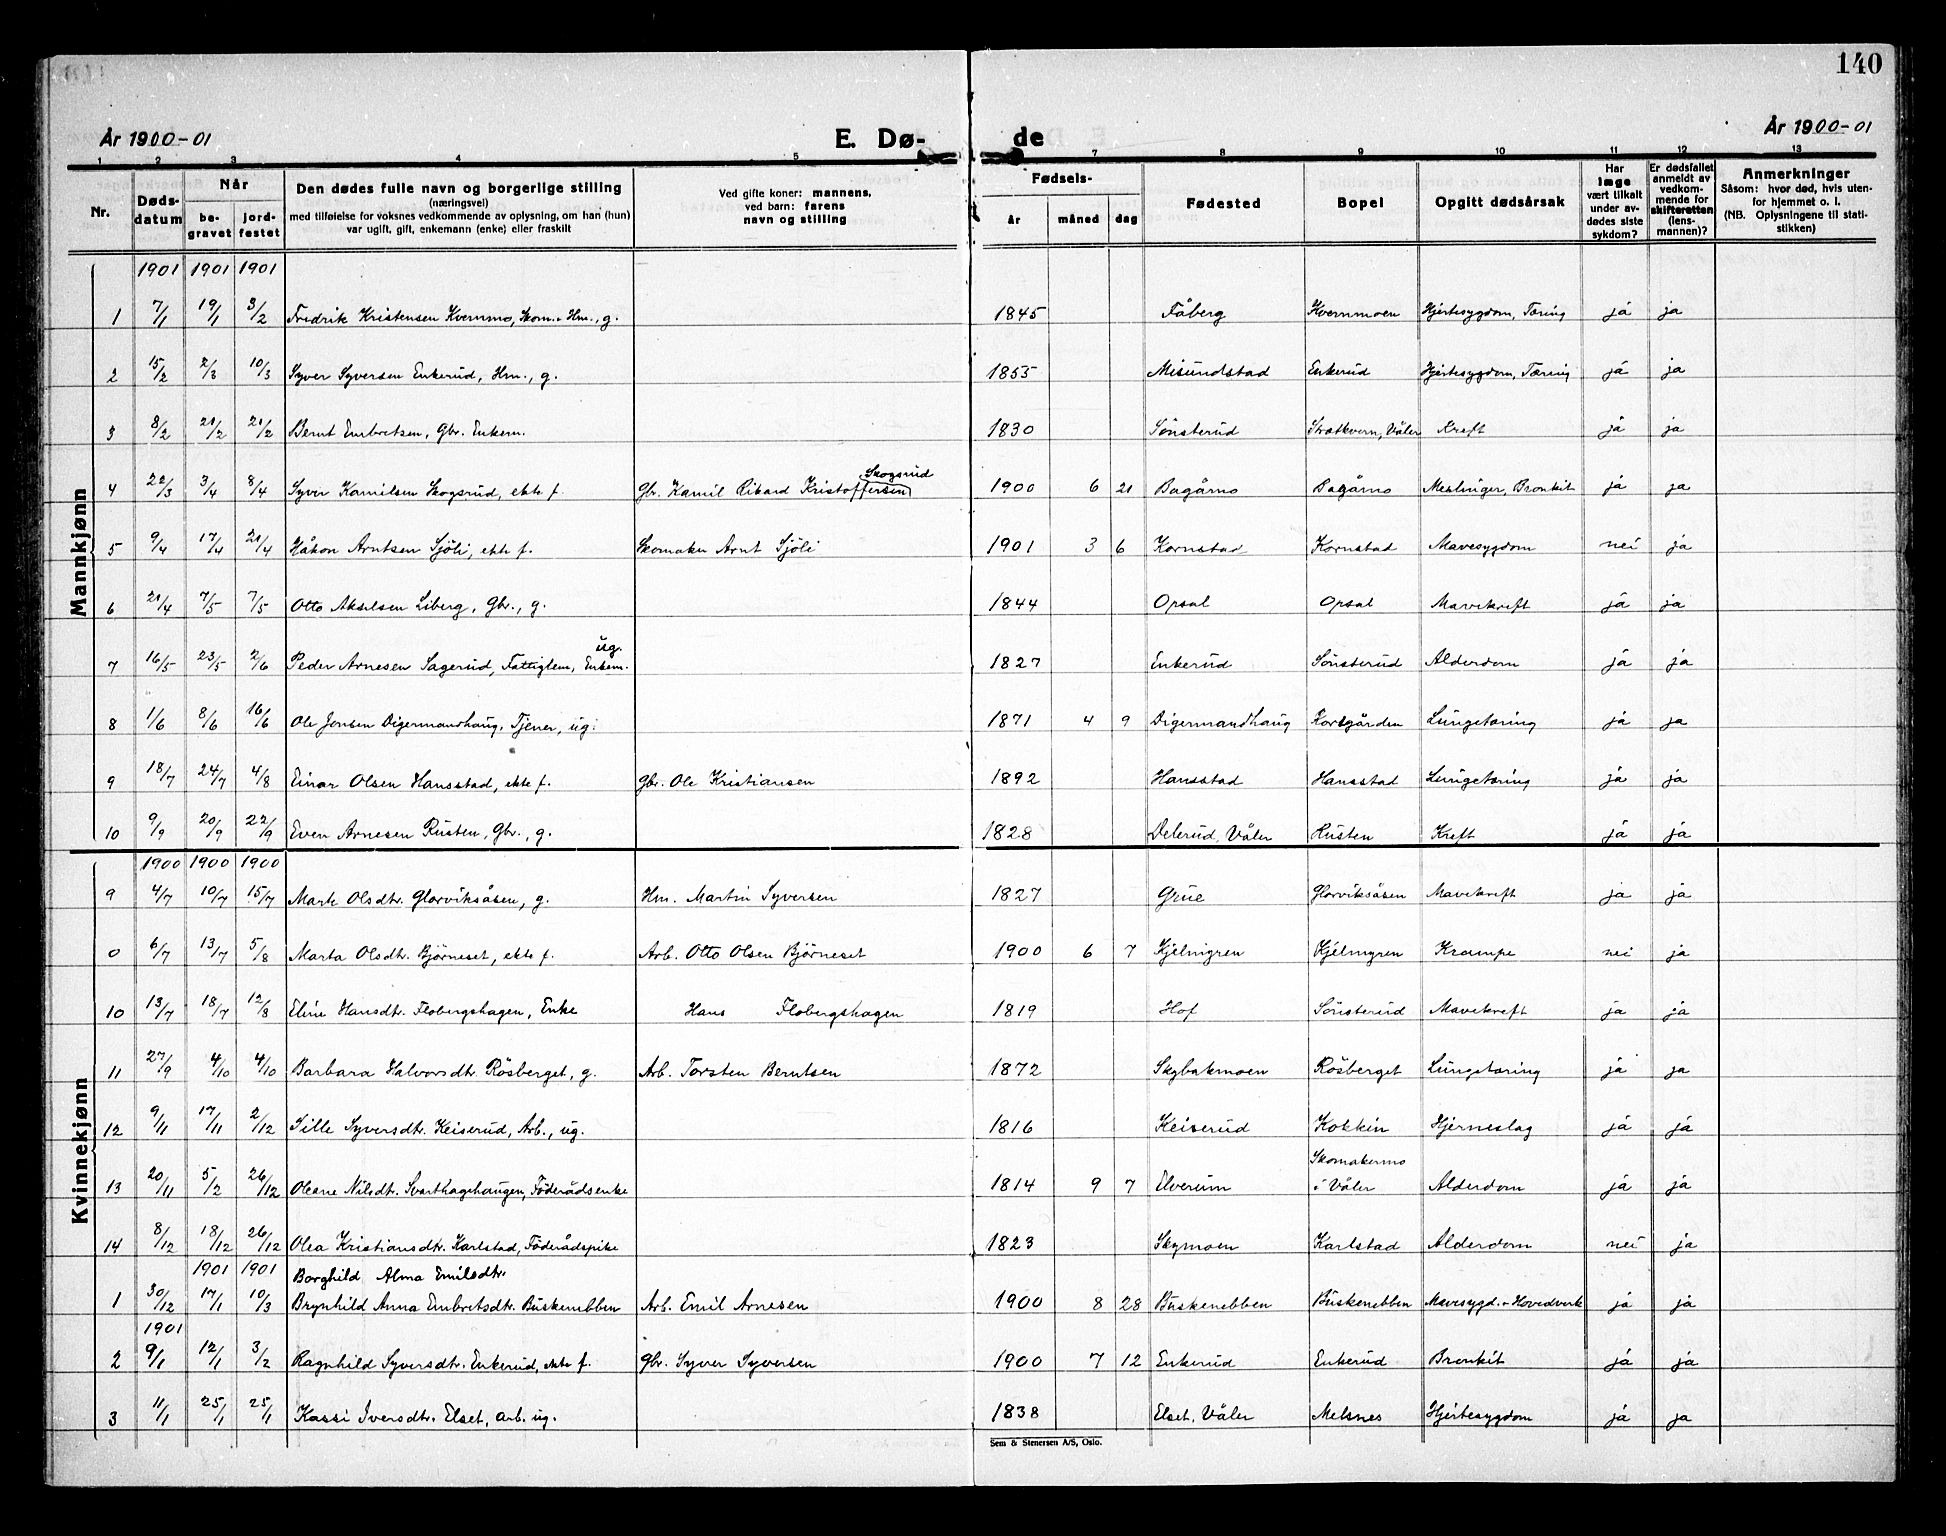 140
År 1900-01 E. Dø- de År 1900-01
1 2 3 4 5 7 8 9 10 11 12 13
Nr. Døds-datum Når be-gravet jord-festet Den dødes fulle navn og borgerlige stilling (næringsvei) med tilføielse for voksnes vedkommende av oplysning, om han (hun) var ugift, gift, enkemann (enke) eller fraskilt Ved gifte koner: mannens, ved barn: farens navn og stilling Fødsels- år måned dag Fødested Bopel Opgitt dødsårsak Har læge vært tilkalt under av-dødes siste sykdom? Er dødsfallet anmeldt av vedkom-mende for skifteretten (lens-mannen)? Anmerkninger Såsom: hvor død, hvis uten-for hjemmet o. l. (NB. Oplysningene til stati-stikken)
Mannkjønn
1901 1901 1901
1 7/1 19/1 3/2 Fredrik Kristensen Kvernmo, Skom. Hm., g. 1845 Fåberg Kvernmoen Hjertesygdom, Tæring já ja
2 15/2 2/3 10/3 Syver Syversen Enkerud, Hm., g. 1855 Misundstad Enkerud Hjertesygdom, Tæring já ja
3 8/2 21/2 21/2 Bernt Embretsen, Gbr. Enkem. 1830 Sønsterud Strætkvern, Våler Kreft já ja
4 22/3 3/4 8/4 Syver Kamilsen Skogsrud, ekte f. Gbr. Kamil Rikard Kristoffersen Skogsrud 1900 6 21 Bagårno Bagårno Meslinger, Bronkit já ja
5 9/4 17/4 21/4 Håkon Arntsen Sjöli, ekte f. Skomaker Arnt Sjöli 1901 3 6 Kornstad Kornstad Mavesygdom nei ja
6 21/4 7/5 7/5 Otto Akselsen Liberg, Gbr., g. 1844 Opsal Opsal Mavekreft já ja
7 16/5 23/5 2/6 Peder Arnesen Sagerud, Fattiglem, Enkem. ug. 1827 Enkerud Sönsterud Alderdom já ja
8 1/6 8/6 16/6 Ole Jonsen Digermandhaug, Tjener, ug. 1871 4 9 Digermandhaug Korsgården Lungetæring já ja
9 18/7 24/7 4/8 Einar Olsen Hansstad, ekte f. Gbr. Ole Kristiansen 1892 Hansstad Hansstad Lungetæring já ja
10 9/9 20/9 22/9 Even Arnesen Rusten, Gbr., g. 1828 Delerud, Våler Rusten Kreft já ja
Kvinnekjønn
1900 1900 1900
9 4/7 10/7 15/7 Marte Olsdtr. Glorviksåsen, g. Hm. Martin Syversen 1827 Grue Glorviksåsen Mavekreft ja ja
0 6/7 13/7 5/8 Marta Olsdtr. Bjørneset, ekte f. Arb. Otto Olsen Bjørneset 1900 6 7 Kjelmyren Kjelmyren Krampe nei ja
10 13/7 18/7 12/8 Eline Hansdtr. Flobergshagen, Enke Hans Flobergshagen 1819 Hof Sönsterud Mavekreft ja já
11 27/9 4/10 4/10 Barbara Halvorsdtr. Rösberget, g. Arb. Torsten Berntsen 1872 Skybakmoen Rösberget Lungetæring já ja
12 9/11 17/11 2/12 Sille Syversdtr. Keiserud, Arb., ug. 1816 Keiserud Kokkin Hjerneslag já já
13 20/11 5/2 26/12 Oleane Nilsdtr. Svarthagehaugen, Föderådsenke 1814 9 7 Elverum Skomakermo i Våler Alderdom já já
14 8/12 18/12 26/12 Olea Kristiansdtr. Karlstad, Föderådspike 1823 Skymoen Karlstad Alderdom nei ja
1901 1901 Borghild Alma Emilsdtr.
1 30/12 17/1 10/3 Brynhild Anna Embretsdtr. Buskenebben Arb. Emil Arnesen 1900 8 28 Buskenebben Buskenebben Mavesygd. Hovedverk já ja
1901
2 9/1 12/1 3/2 Ragnhild Syversdtr. Enkerud, ekte f. Gbr. Syver Syversen 1900 7 12 Enkerud Enkerud Bronkit já ja
3 11/1 25/1 25/1 Kassi Iversdtr. Elset, arb. ug. 1838 Elset, Våler Melsnes Hjertesygdom já ja
Sem & Stenersen A/S, Oslo.